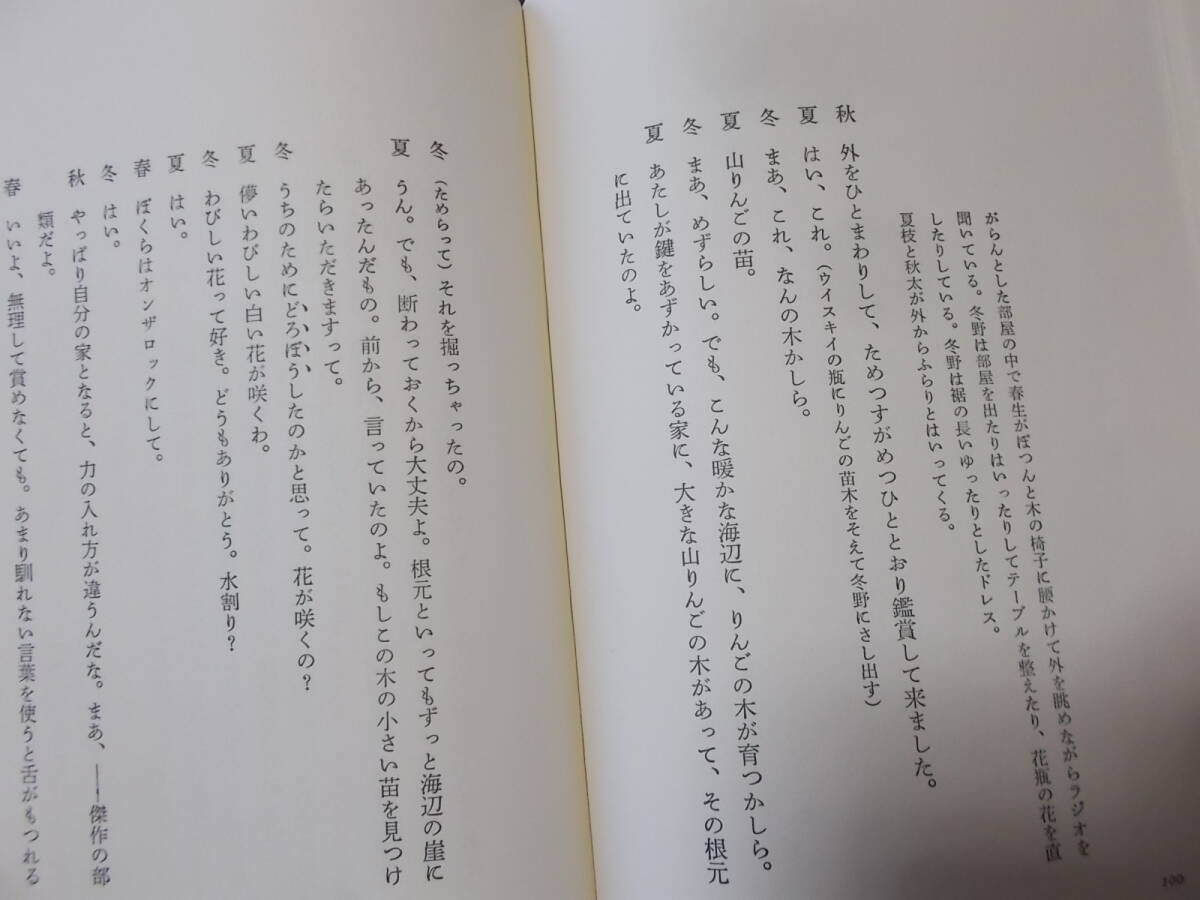 がらんとした部屋の中で春生がぽつんと木の椅子に腰かけて外を眺めながらラジオを
聞いている。冬野は部屋を出たりはいったりしてテーブルを整えたり、花瓶の花を直
したりしている。冬野は裾の長いゆったりとしたドレス。
夏枝と秋太が外からふらりとはいってくる。
秋 外をひとまわりして、ためつすがめつひととおり鑑賞して来ました。
夏 はい、これ。(ウイスキイの瓶にりんごの苗木をそえて冬野にさし出す)
冬 まあ、これ、なんの木かしら。
夏 山りんごの苗。
冬 まあ、めずらしい。でも、こんな暖かな海辺に、りんごの木が育つかしら。
夏 あたしが鍵をあずかっている家に、大きな山りんごの木があって、その根元
に出ていたのよ。
100
冬 (ためらって)それを掘っちゃったの。
夏 うん。でも、断わっておくから大丈夫よ。根元といってもずっと海辺の崖に
あったんだもの。前から、言っていたのよ。もしこの木の小さい苗を見つけ
たらいただきますって。
冬 うちのためにどろぼうしたのかと思って。花が咲くの?
夏 儚いわびしい白い花が咲くわ。
冬 わびしい花って好き。どうもありがとう。水割り?
夏 はい。
春 ぼくらはオンザロックにして。
冬 はい。
秋 やっぱり自分の家となると、力の入れ方が違うんだな。まあ、――傑作の部
類だよ。
春 いいよ、無理して賞めなくても。あまり馴れない言葉を使うと舌がもつれる